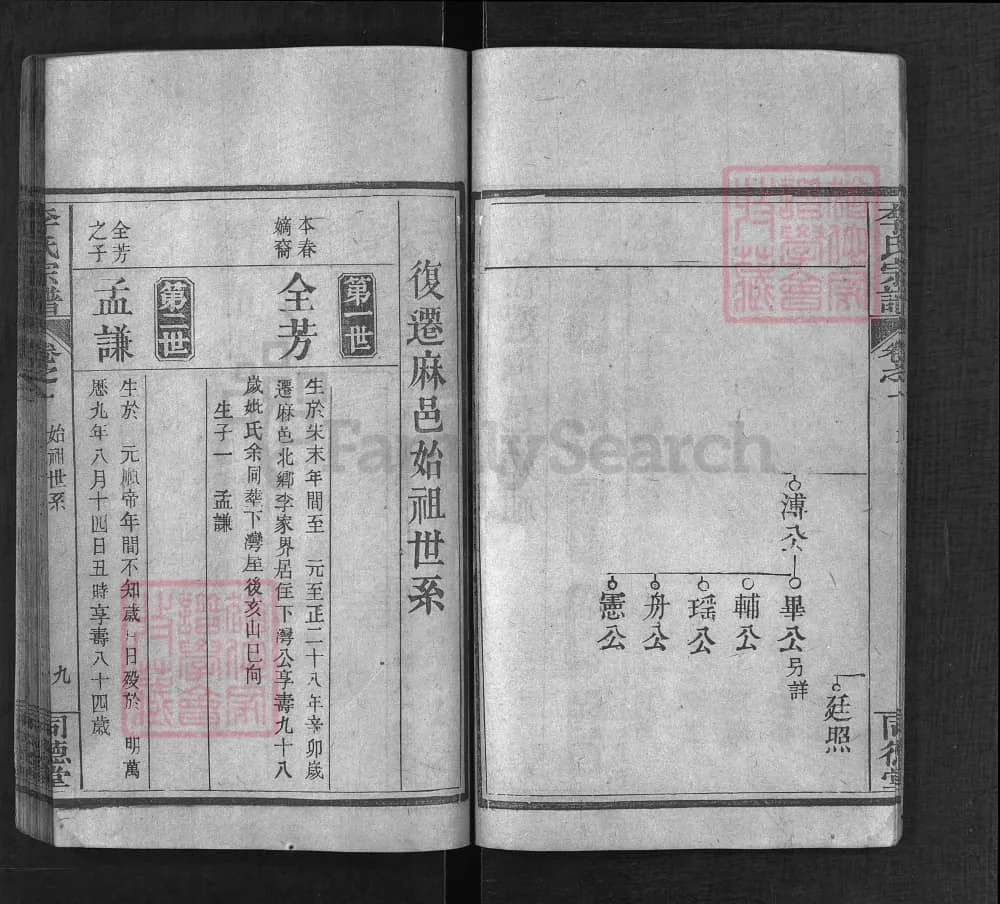 李氏宗譜
卷之一
同德堂
廷照
溥公
畢公另詳
輔公
瑶公
舟公
憲公
復遷麻邑始祖世系
第一世
本春
嫡裔
全芳
生於宋末年間至 元至正二十八年辛卯歲
遷麻邑北鄉李家界居住下灣公享壽九十八
歲妣氏余同葬下灣屋後亥山巳向
生子一 孟謙
第二世
全芳
之子
孟謙
生於 元順帝年間不知歲月日歿於 明萬
歷九年八月十四日丑時享壽八十四歲
李氏宗譜
卷之一
始祖世系
九
同德堂
FamilySearch